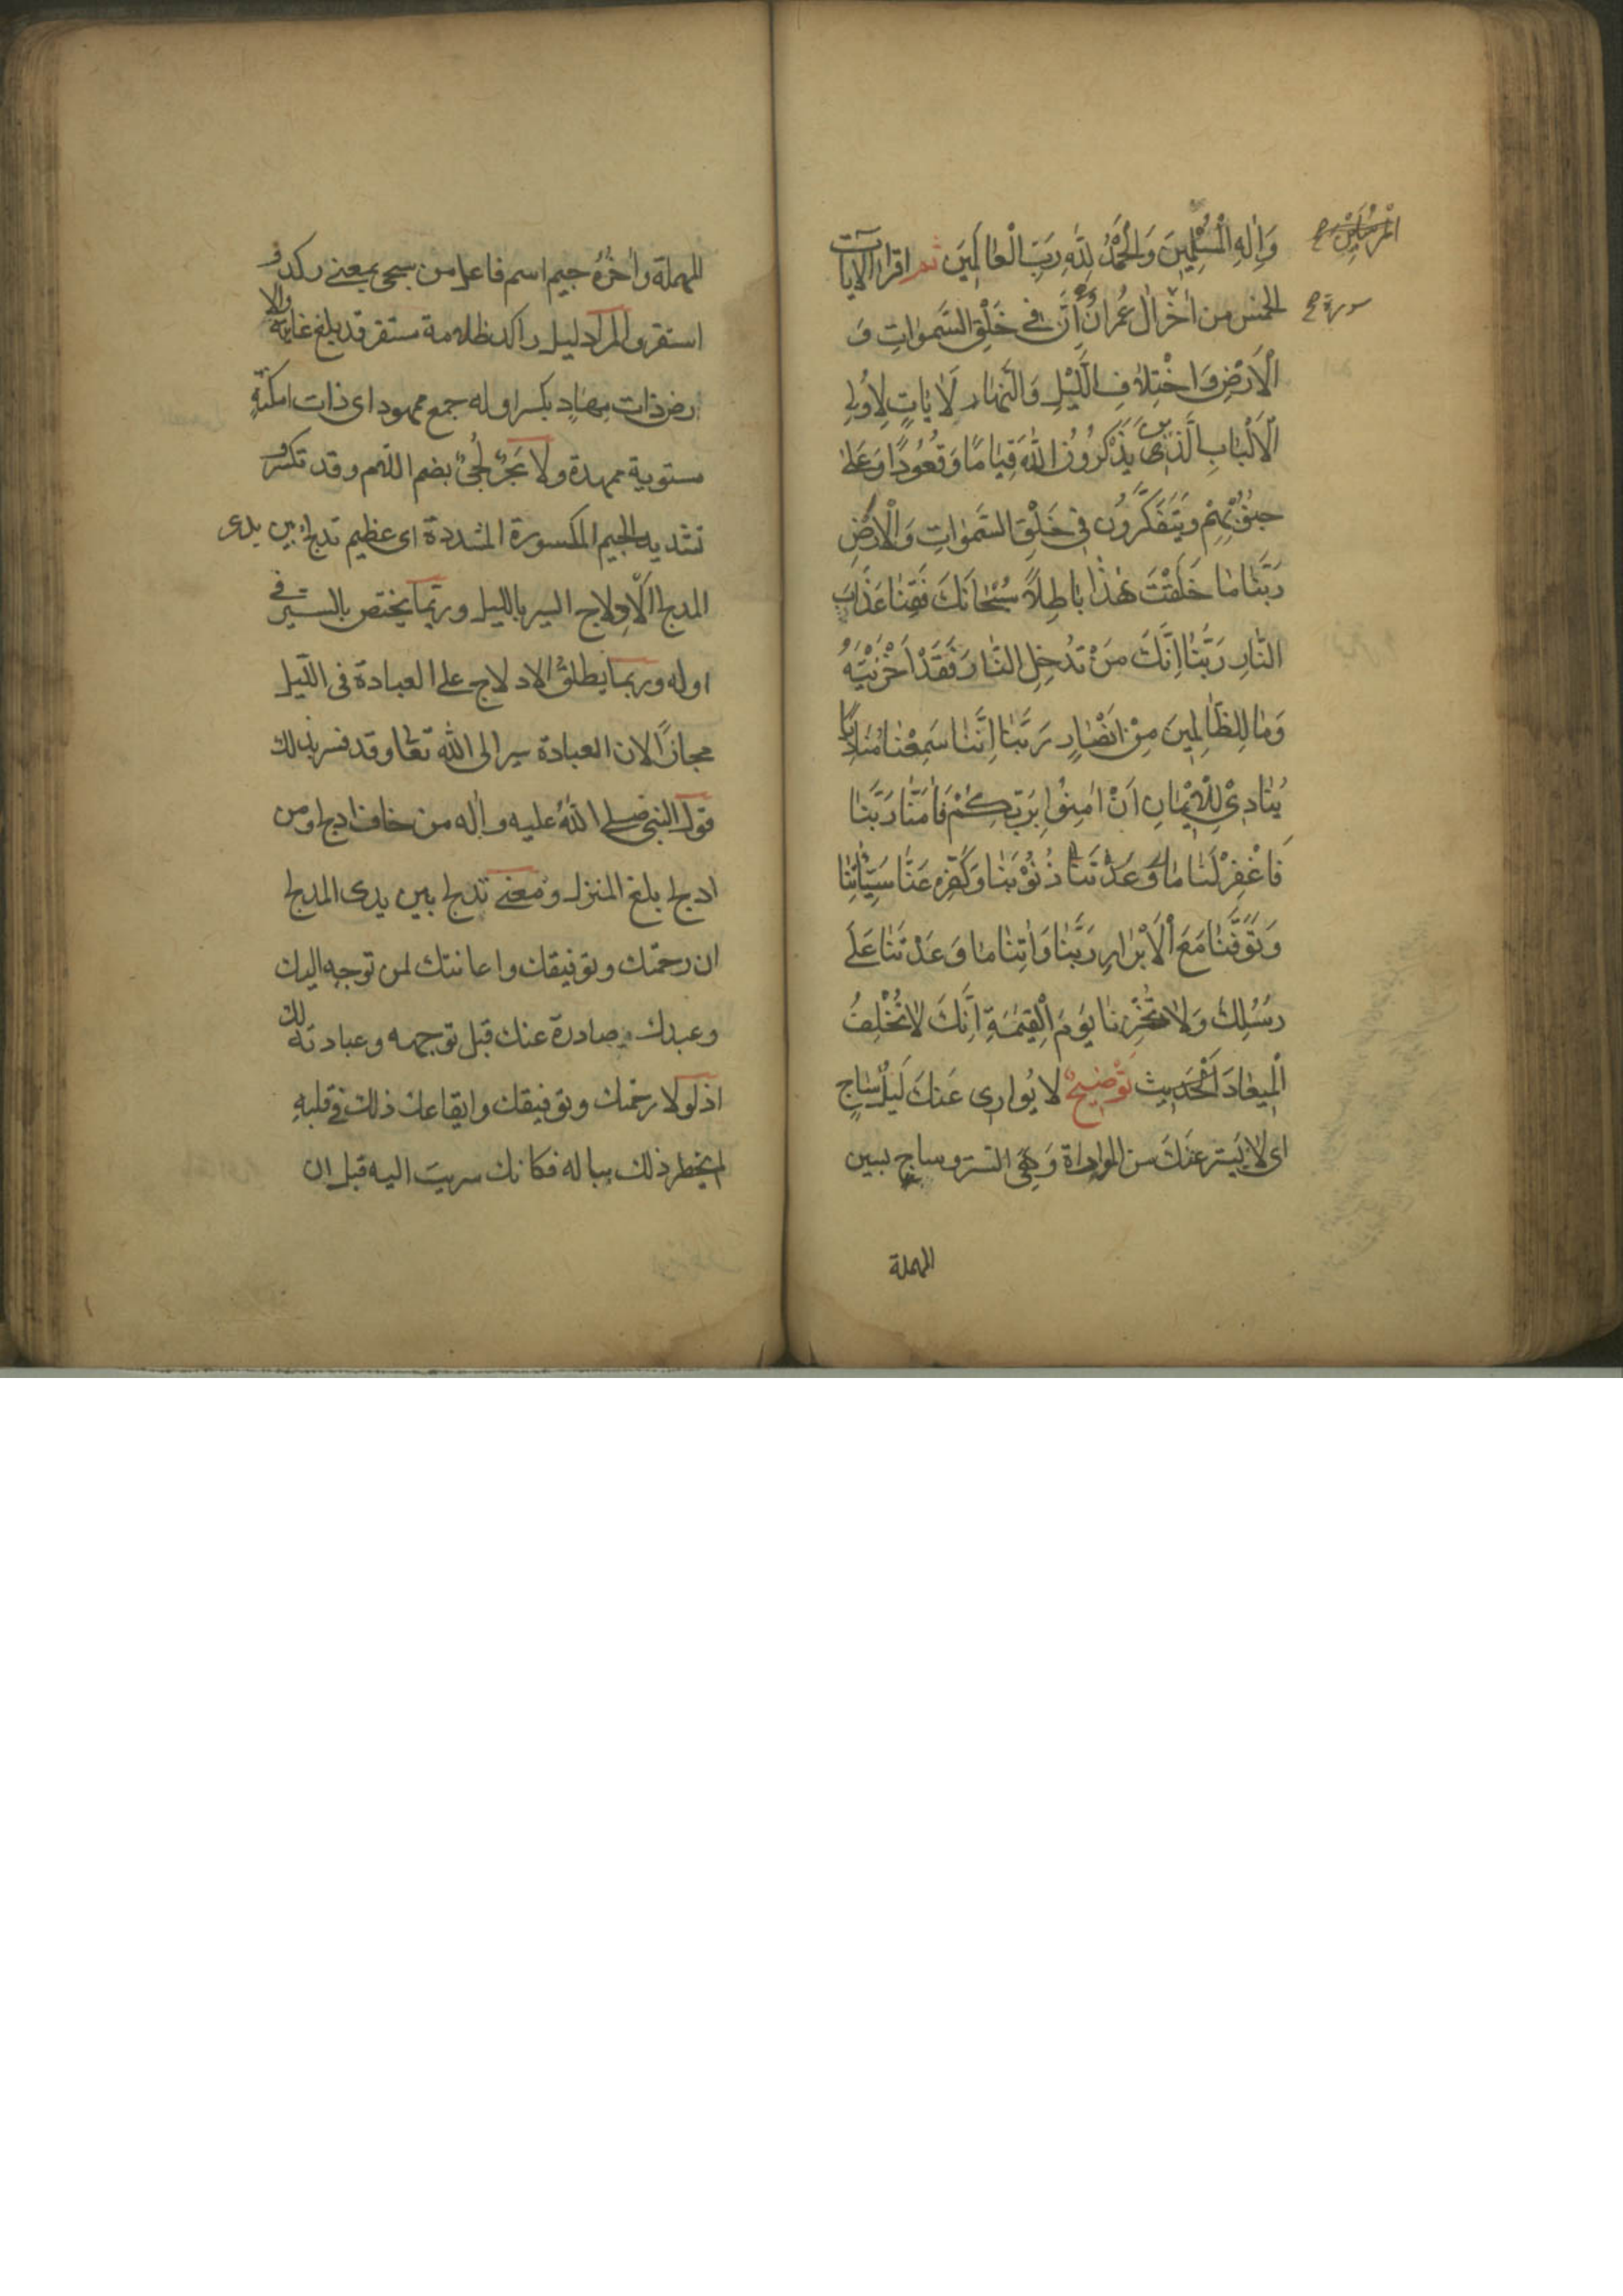 وَاِلٰهِ الْمُسْلِمِينَ وَالْحَمْدُ لِلّٰهِ رَبِّ الْعٰالَمِينَ ثم اقرا الايات
المرسلين ح
الخمس من اٰخر اٰل عُمران اِنَّ فى خَلْقِ السَّمٰوٰاتِ وَ
سورة ح
الْاَرْضِ وَاخْتِلاٰفِ اللَّيْلِ وَالنَّهٰارِ لَاٰيٰاتٍ لِاُولِى
الْاَلْبٰابِ الَّذينَ يَذْكُرُونَ اللّٰهَ قِيٰامًا وَقُعُودًا وَعَلىٰ
جُنُوبِهِمْ وَيَتَفَكَّرُونَ فى خَلْقِ السَّمٰوٰاتِ وَالْاَرْضِ
رَبَّنٰا مٰا خَلَقْتَ هٰذٰا بٰاطِلاً سُبْحٰانَكَ فَقِنٰا عَذٰابَ
النّٰارِ رَبَّنٰا اِنَّكَ مَنْ تُدْخِلِ النّٰارَ فَقَدْ اَخْزَيْتَهُ
وَمٰا لِلظّٰالِمينَ مِنْ اَنْصٰارٍ رَبَّنٰا اِنَّنٰا سَمِعْنٰا مُنٰادِيًا
يُنٰادى لِلْاِيمٰانِ اَنْ اٰمِنُوا بِرَبِّكُمْ فَاٰمَنّٰا رَبَّنٰا
فَاغْفِرْ لَنٰا مٰا وَعَدْتَنٰا ذُنُوبَنٰا وَكَفِّرْ عَنّٰا سَيِّئٰاتِنٰا
وَتَوَفَّنٰا مَعَ الْاَبْرٰارِ رَبَّنٰا وَاٰتِنٰا مٰا وَعَدْتَنٰا عَلىٰ
رُسُلِكَ وَلاٰ تُخْزِنٰا يَوْمَ الْقِيٰمَةِ اِنَّكَ لاٰ تُخْلِفُ
الْمِيعٰادَ الْحَديث تَوْضيحٌ لا يُوارى عَنكَ لَيلٌ سٰاجٍ
اى لاٰ يَستر عَنكَ من المواراة وَهِىَ الستر وساج بسين
المهملة
المهملة واٰخرهُ جيم اسم فاعل من سجى بمعنى ركد و
استقر والمراد ليل راكد ظلامه مستقر قد بلغ غايته والا
رض ذات مِهادٍ بكسر اوله جمع ممهود اى ذات امكنةٍ
مستوية ممهدة ولا بَحرٌ لُجىٌّ بضم اللام وقد تكسر و
تشديد الجيم المكسورة المشددة اى عظيم تدلج بين يدى
المدلج الاِدلاج السير بالليل وربّما يختص بالسير فى
اوله وربما يطلق الادلاج على العبادة فى الليل
مجازًا لان العبادة سير الى الله تعالى وقد فسر بذلك
قول النبى صلى اللهُ عليه واٰله من خاف ادلج ومن
ادلج بلغ المنزل ومعنى تدلج بين يدى المدلج
ان رحمتك وتوفيقك واعانتك لمن توجه اليك
وعبدك صادرة عنك قبل توجهه وعبادته لك
اذ لولا رحمتك وتوفيقك وايقاعك ذلك فى قلبهِ
لم يخطر ذلك بباله فكانك سريتَ اليه قبل ان